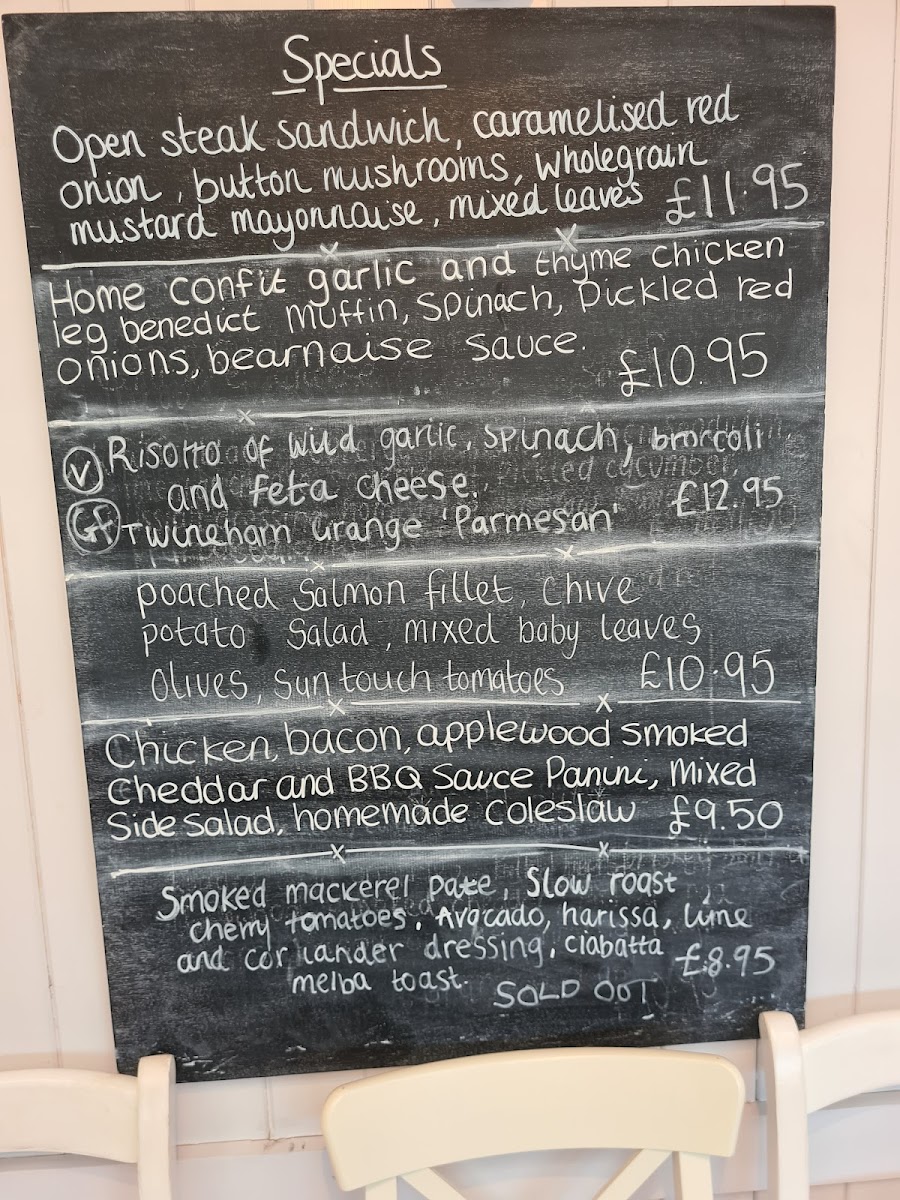 Specials
Open steak sandwich, caramelised red
onion, button mushrooms, wholegrain
mustard mayonnaise, mixed leaves £11.95
Home confit garlic and thyme chicken
leg benedict muffin, spinach, pickled red
onions, bearnaise sauce. £10.95
V Risotto of wild garlic, spinach, broccoli
and feta cheese. £12.95
GF Twineham Grange 'Parmesan'
poached Salmon fillet, chive
potato Salad, mixed baby leaves
Olives, sun touch tomatoes £10.95
Chicken, bacon, applewood smoked
Cheddar and BBQ Sauce Panini, Mixed
Side Salad, homemade coleslaw £9.50
Smoked mackerel pate, Slow roast
cherry tomatoes, Avocado, harissa, lime
and coriander dressing, ciabatta £8.95
melba toast. SOLD OUT